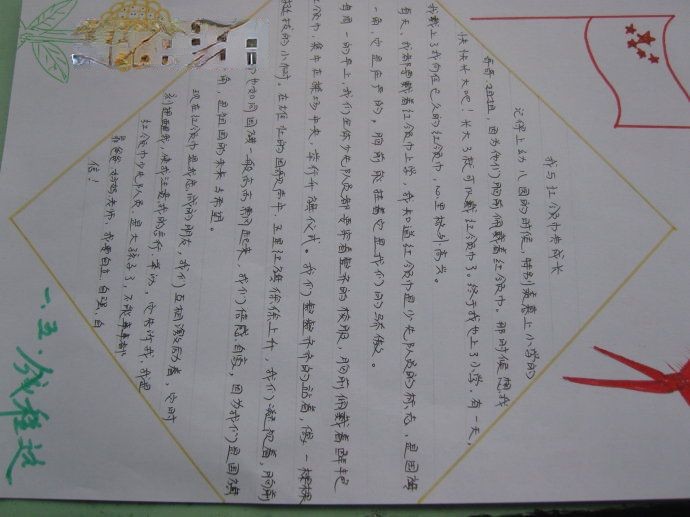 我与红领巾共成长
记得上幼儿园的时候，特别羡慕上小学的
哥哥、姐姐，因为他们胸前佩戴着红领巾。那时候想我
快快长大吧！长大了就可以戴红领巾了。终于我也上了小学，有一天，
我戴上了我向往已久的红领巾，心里特别高兴。
每天，我都要戴着红领巾上学，我知道红领巾是少先队员的标志，是国旗
一角，它是庄严的。胸前飘扬着它是我们的骄傲。
每周一的早上，我们全体少先队员都要穿着整齐的校服，胸前佩戴着鲜艳
红领巾，集中在操场中央，举行升旗仪式。我们整整齐齐的站着，像一棵棵
挺拔的小树。在雄壮的国歌声中，五星红旗徐徐上升，我们凝视着，胸前
的也如同国旗一般高高飘起来，我们倍感自豪，因为我们是国旗
角，是祖国的未来与希望。
现在红领巾是我忠诚的朋友，我们互相激励着，它时
刻提醒我，使我注意我的言行、举动，它告诉我，我是
红领巾少先队员，是大孩子了，不能事事都
靠爸爸妈妈老师，我要自立、自强、自
信！
一.五.